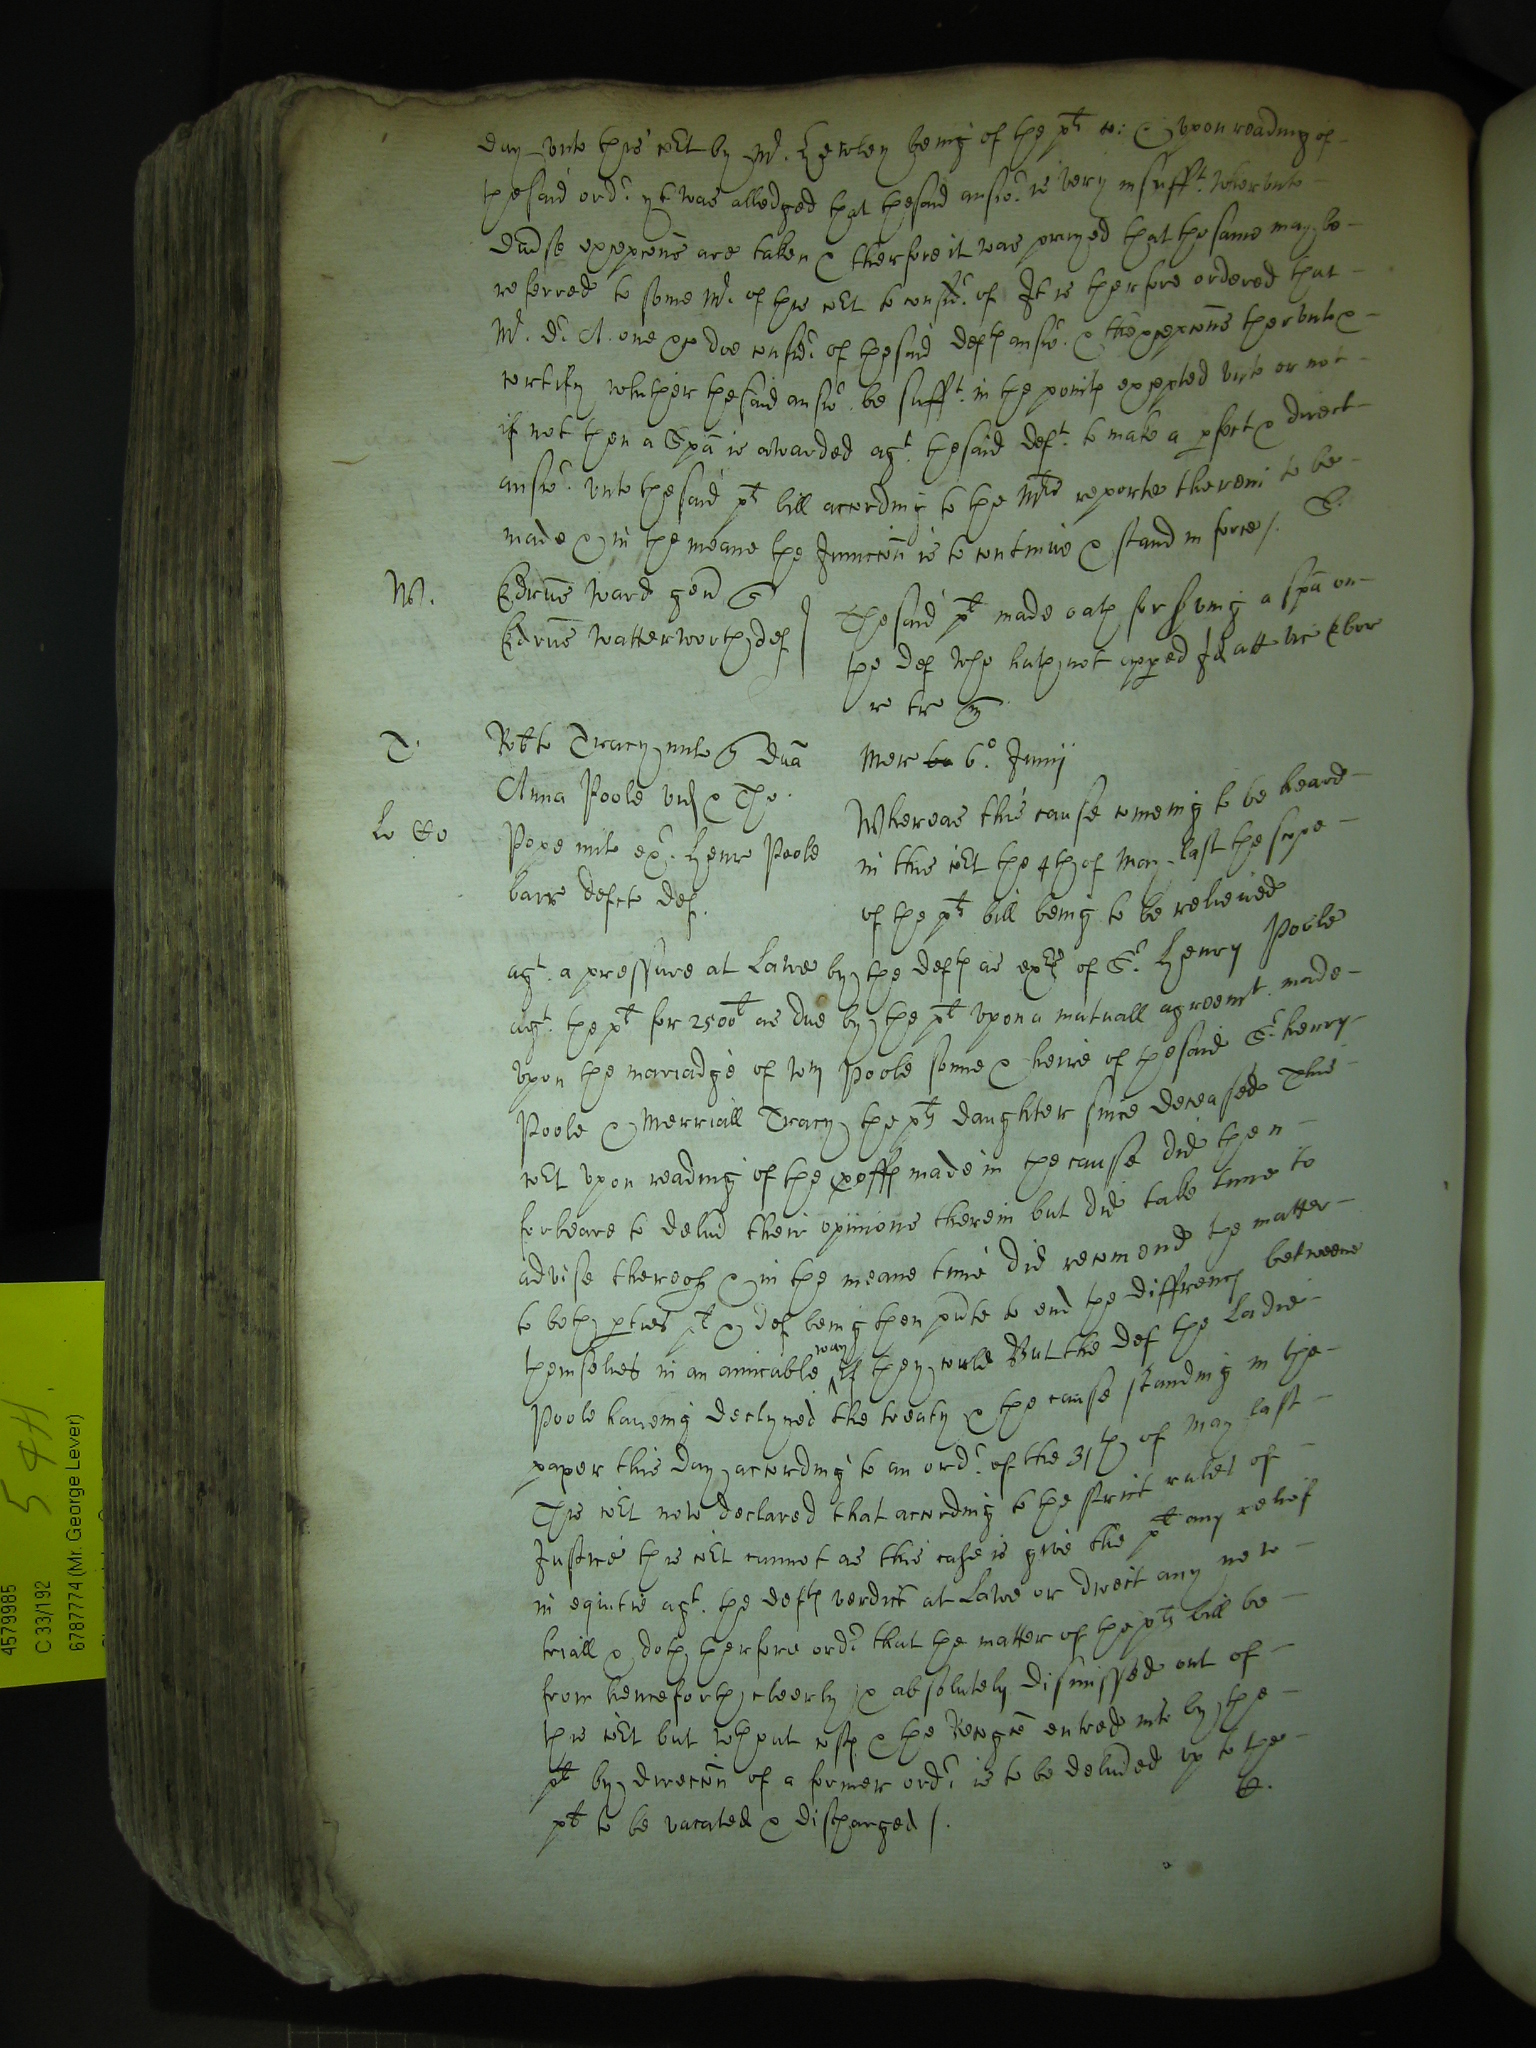 day unto this cort by Mr. Hewley being of the plts co: & upon reading of
the said ordr. yt was alledged that the said answr. is very insufft. wherunto
divrse excepcons are taken & therfore it was prayed that the same may be
referred to some Mr. of this cort to considr. of It is therfore ordered that
Mr. Dr. A. one &c doe considr. of the said defts answr. & the excepcons therunto &
certify whether the said answr. be sufft. in the points excepted unto or not
if not then a Spa is awarded agt. the said deft. to make a pfect & direct
answr. unto the said plts bill according to the Mrs reporte therein to be
made & in the meane the Injunccon is to continue & stand in force /. S.
W. Edrus Ward gen q
Edrus Watterworth def
The said plt made oath for serving a spa on
the def who hath not apped Id att vic Ebor
re tre
T. Robto Tracy milo q dna
Anna Poole vid & Tho.
Pope milo exr. Henr Poole
barr defcto def.
Mer 6o. Junij
Whereas this cause comeing to be heard
in this cort the 4th of May last the scope
of the plts bill being to be relieved
agt. a pressure at Lawe by the defts as exrs of Sr. Henry Poole
agt. the plt for 2500l as due by the plt upon a mutuall agreemt. made
upon the mariadge of Wm Poole sonne & heire of the said Sr. Henry
Poole & Merriall Tracy the plts daughter since deceased This
cort upon reading of the proffs made in the cause did then
forbeare to delivr their opinions therein but did take time to
advise thereof & in the meane time did recomend the matter
to both pties plt & def being then psnte to end the diffrencs betweene
themselves in an amicable way if they could But the def the Ladie
Poole haveing declyned the treaty & the cause standing in the
paper this day according to an ordr. of the 31th of May last
This cort now declared that according to the strict rules of
Justice this cort cannot as this case is give the plt any relief
in equitie agt. the defts verdict at Lawe or direct any new
triall & doth therfore ordr. that the matter of the plts bill be
from henceforth cleerly & absolutely dismissed out of
this cort but wthout costs & the Recogce entred into by the
plt by direccon of a former ordr. is to be delivred up to the
plt to be vacated & discharged /.
5 41
4579985
C 33/192
6787774 (Mr. George Lever)